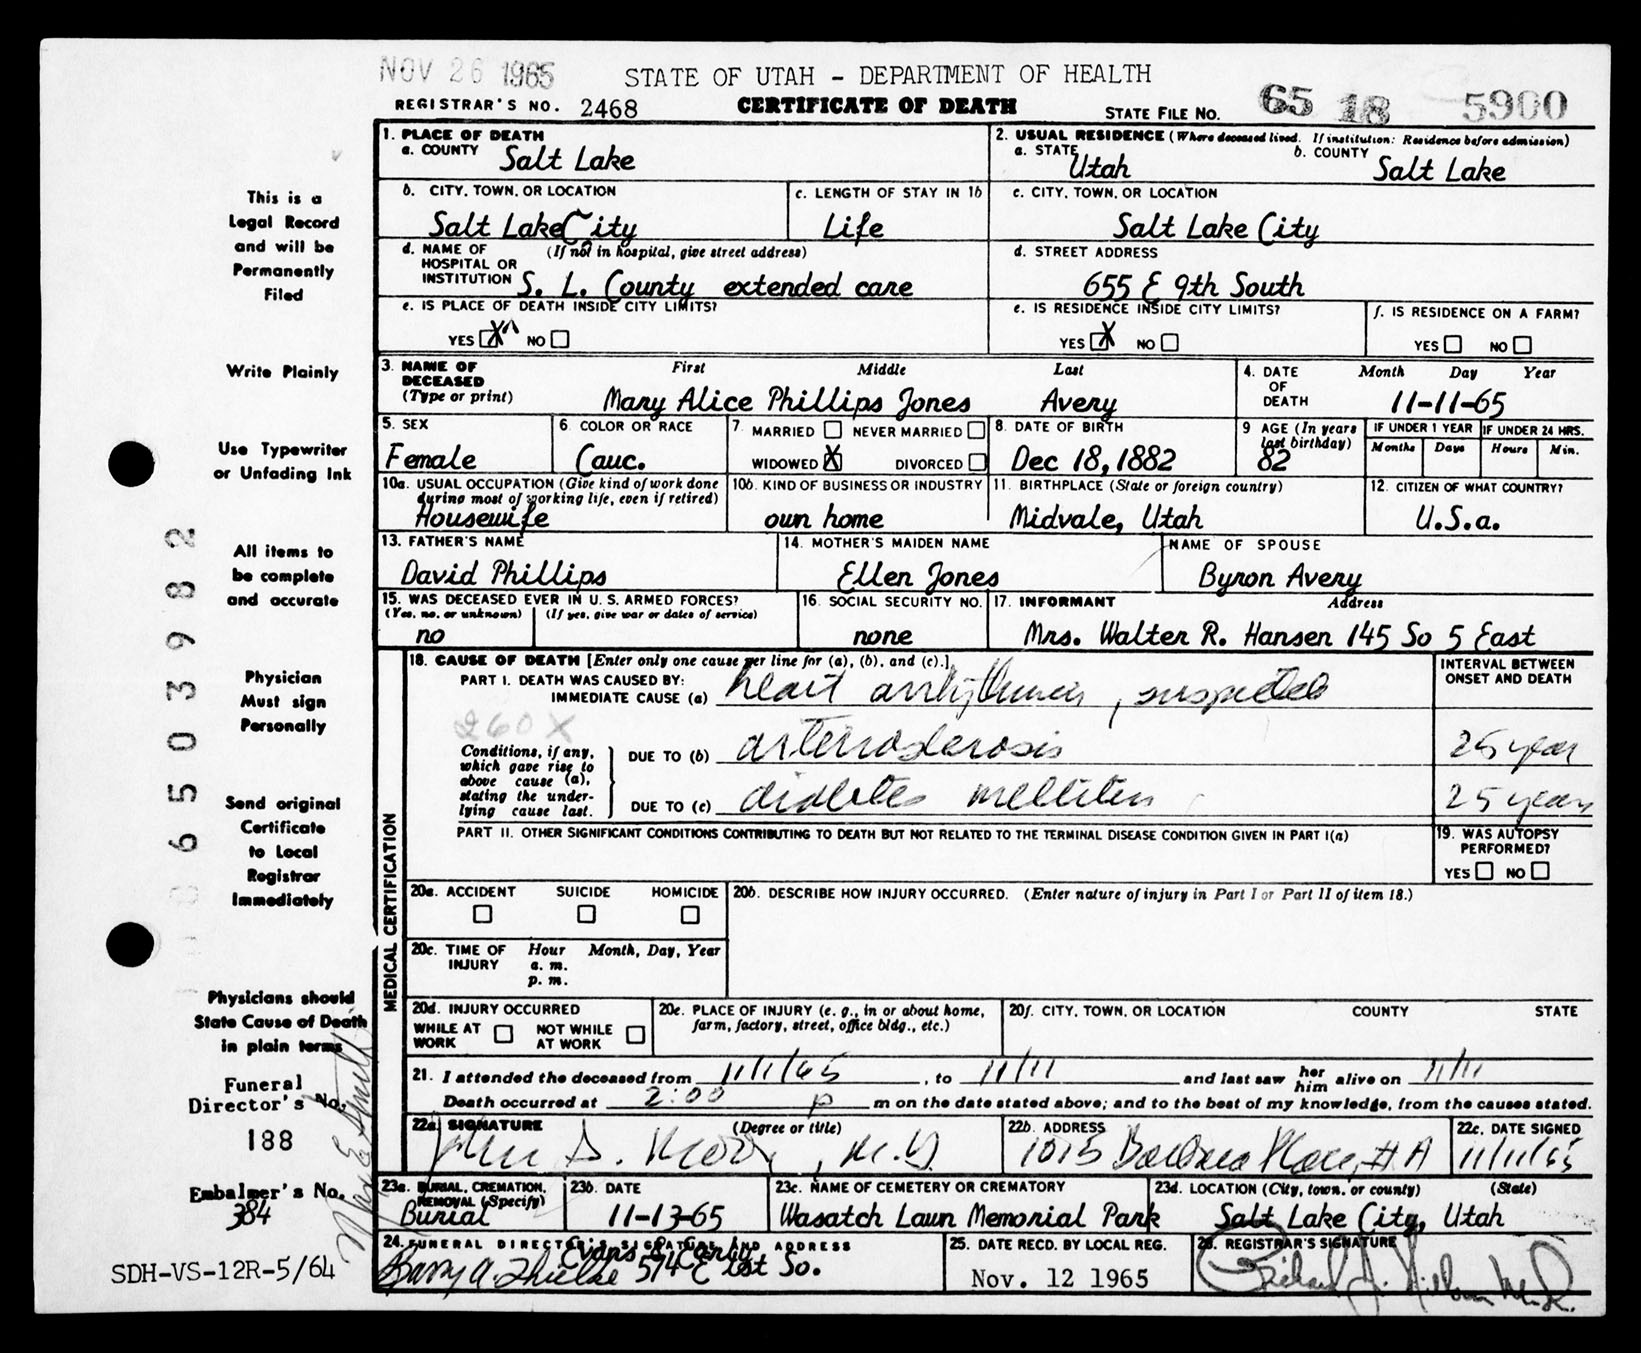 NOV 26 1965
STATE OF UTAH - DEPARTMENT OF HEALTH
REGISTRAR'S NO. 2468
CERTIFICATE OF DEATH
STATE FILE NO. 65 18 5900
1. PLACE OF DEATH
a. COUNTY Salt Lake
2. USUAL RESIDENCE (Where deceased lived. If institution: Residence before admission)
a. STATE Utah b. COUNTY Salt Lake
b. CITY, TOWN, OR LOCATION
Salt Lake City
c. LENGTH OF STAY IN 1b
Life
c. CITY, TOWN, OR LOCATION
Salt Lake City
d. NAME OF HOSPITAL OR INSTITUTION (If not in hospital, give street address)
S. L. County extended care
d. STREET ADDRESS
655 E 9th South
e. IS PLACE OF DEATH INSIDE CITY LIMITS?
YES X NO
e. IS RESIDENCE INSIDE CITY LIMITS?
YES X NO
f. IS RESIDENCE ON A FARM?
YES NO
3. NAME OF DECEASED (Type or print)
First Middle Last
Mary Alice Phillips Jones Avery
4. DATE OF DEATH Month Day Year
11-11-65
5. SEX
Female
6. COLOR OR RACE
Cauc.
7. MARRIED NEVER MARRIED
WIDOWED X DIVORCED
8. DATE OF BIRTH
Dec 18, 1882
9 AGE (In years last birthday)
82
IF UNDER 1 YEAR
Months Days
IF UNDER 24 HRS.
Hours Min.
10a. USUAL OCCUPATION (Give kind of work done during most of working life, even if retired)
Housewife
10b. KIND OF BUSINESS OR INDUSTRY
own home
11. BIRTHPLACE (State or foreign country)
Midvale, Utah
12. CITIZEN OF WHAT COUNTRY?
U.S.a.
13. FATHER'S NAME
David Phillips
14. MOTHER'S MAIDEN NAME
Ellen Jones
NAME OF SPOUSE
Byron Avery
15. WAS DECEASED EVER IN U. S. ARMED FORCES?
(Yes, no, or unknown) (If yes, give war or dates of service)
no
16. SOCIAL SECURITY NO.
none
17. INFORMANT Address
Mrs. Walter R. Hansen 145 So 5 East
MEDICAL CERTIFICATION
18. CAUSE OF DEATH [Enter only one cause per line for (a), (b), and (c).]
PART I. DEATH WAS CAUSED BY:
IMMEDIATE CAUSE (a) heart arrhythmia, suspected
INTERVAL BETWEEN ONSET AND DEATH
260X
Conditions, if any, which gave rise to above cause (a), stating the under-lying cause last.
DUE TO (b) arteriosclerosis 25 year
DUE TO (c) diabetes mellitus 25 years
PART II. OTHER SIGNIFICANT CONDITIONS CONTRIBUTING TO DEATH BUT NOT RELATED TO THE TERMINAL DISEASE CONDITION GIVEN IN PART I(a)
19. WAS AUTOPSY PERFORMED?
YES NO
20a. ACCIDENT SUICIDE HOMICIDE
20b. DESCRIBE HOW INJURY OCCURRED. (Enter nature of injury in Part I or Part II of item 18.)
20c. TIME OF INJURY Hour Month, Day, Year
a. m.
p. m.
20d. INJURY OCCURRED
WHILE AT WORK NOT WHILE AT WORK
20e. PLACE OF INJURY (e. g., in or about home, farm, factory, street, office bldg., etc.)
20f. CITY, TOWN, OR LOCATION COUNTY STATE
21. I attended the deceased from 11/1/65, to 11/11 and last saw her him alive on 11/11
Death occurred at 2:00 p m on the date stated above; and to the best of my knowledge, from the causes stated.
22a. SIGNATURE (Degree or title)
John D. M.D.
22b. ADDRESS
1015 Barbara Place, #A
22c. DATE SIGNED
11/11/65
23a. BURIAL, CREMATION, REMOVAL (Specify)
Burial
23b. DATE
11-13-65
23c. NAME OF CEMETERY OR CREMATORY
Wasatch Lawn Memorial Park
23d. LOCATION (City, town, or county) (State)
Salt Lake City, Utah
24. FUNERAL DIRECTOR'S SIGNATURE AND ADDRESS
Evans & Early
574 E 1st So.
25. DATE RECD. BY LOCAL REG.
Nov. 12 1965
26. REGISTRAR'S SIGNATURE
This is a
Legal Record
and will be
Permanently
Filed
Write Plainly
Use Typewriter
or Unfading Ink
All items to
be complete
and accurate
Physician
Must sign
Personally
Send original
Certificate
to Local
Registrar
Immediately
Physicians should
State Cause of Death
in plain terms
Funeral
Director's No.
188
Embalmer's No.
384
SDH-VS-12R-5/64
06503982